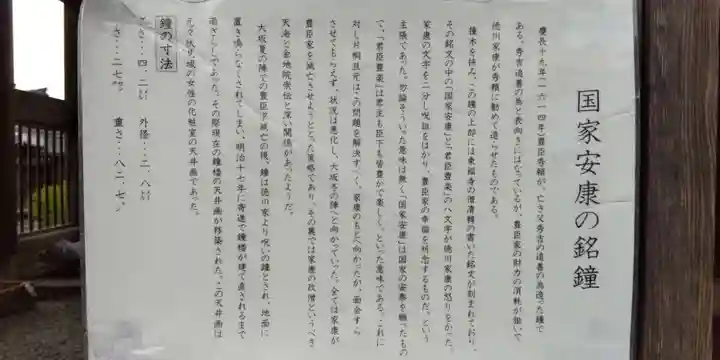 国家安康の銘鐘
慶長十九年(一六一四年)豊臣秀頼が、亡き父秀吉の追善の為造った鐘で
ある。秀吉追善の為と表向きにはなっているが、豊臣家の財力の消耗が狙いで
徳川家康が秀頼に勧めて造らせたものである。
撞木を挟み、この鐘の上部には東福寺の僧清韓の書いた銘文が刻まれており、
その銘文の中の「国家安康」と「君臣豊楽」の八文字が徳川家康の怒りをかった。
家康の文字を二分し呪詛をはかり、豊臣家の幸福を祈念するものだ。という
主張であった。勿論そういった意味は無く「国家安康」は国家の安泰を願ったもの
で、「君臣豊楽」は君主も臣下も皆豊かで楽しく。といった意味である。これに
対し片桐且元はこの問題を解決すべく、家康のもとへ向かったが、面会すら
させてもらえず、状況は悪化し、大坂冬の陣へと向かっていった。全ては家康が
豊臣家を滅亡させようととった策略であり、その裏では家康の政僧というべき
天海と金地院崇伝と深い関係があったようだ。
大坂夏の陣での豊臣家滅亡の後、鐘は徳川家より呪いの鐘とされ、地面に
置き鳴らなくされてしまい、明治十七年に寄進で鐘楼が建て直されるまで
雨ざらしであった。その際現在の鐘楼の天井画が移築された。この天井画は
元々伏見城の女性の化粧室の天井画であった。
鐘の寸法
高さ…四.二㍍ 外径…二.八㍍
厚さ…二七㌢ 重さ…八二.七㌧